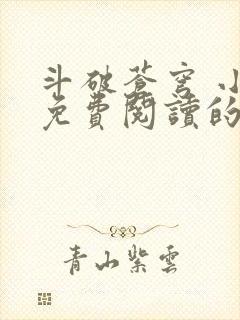 斗破蒼穹 小
免費閱讀的
青山紫雲